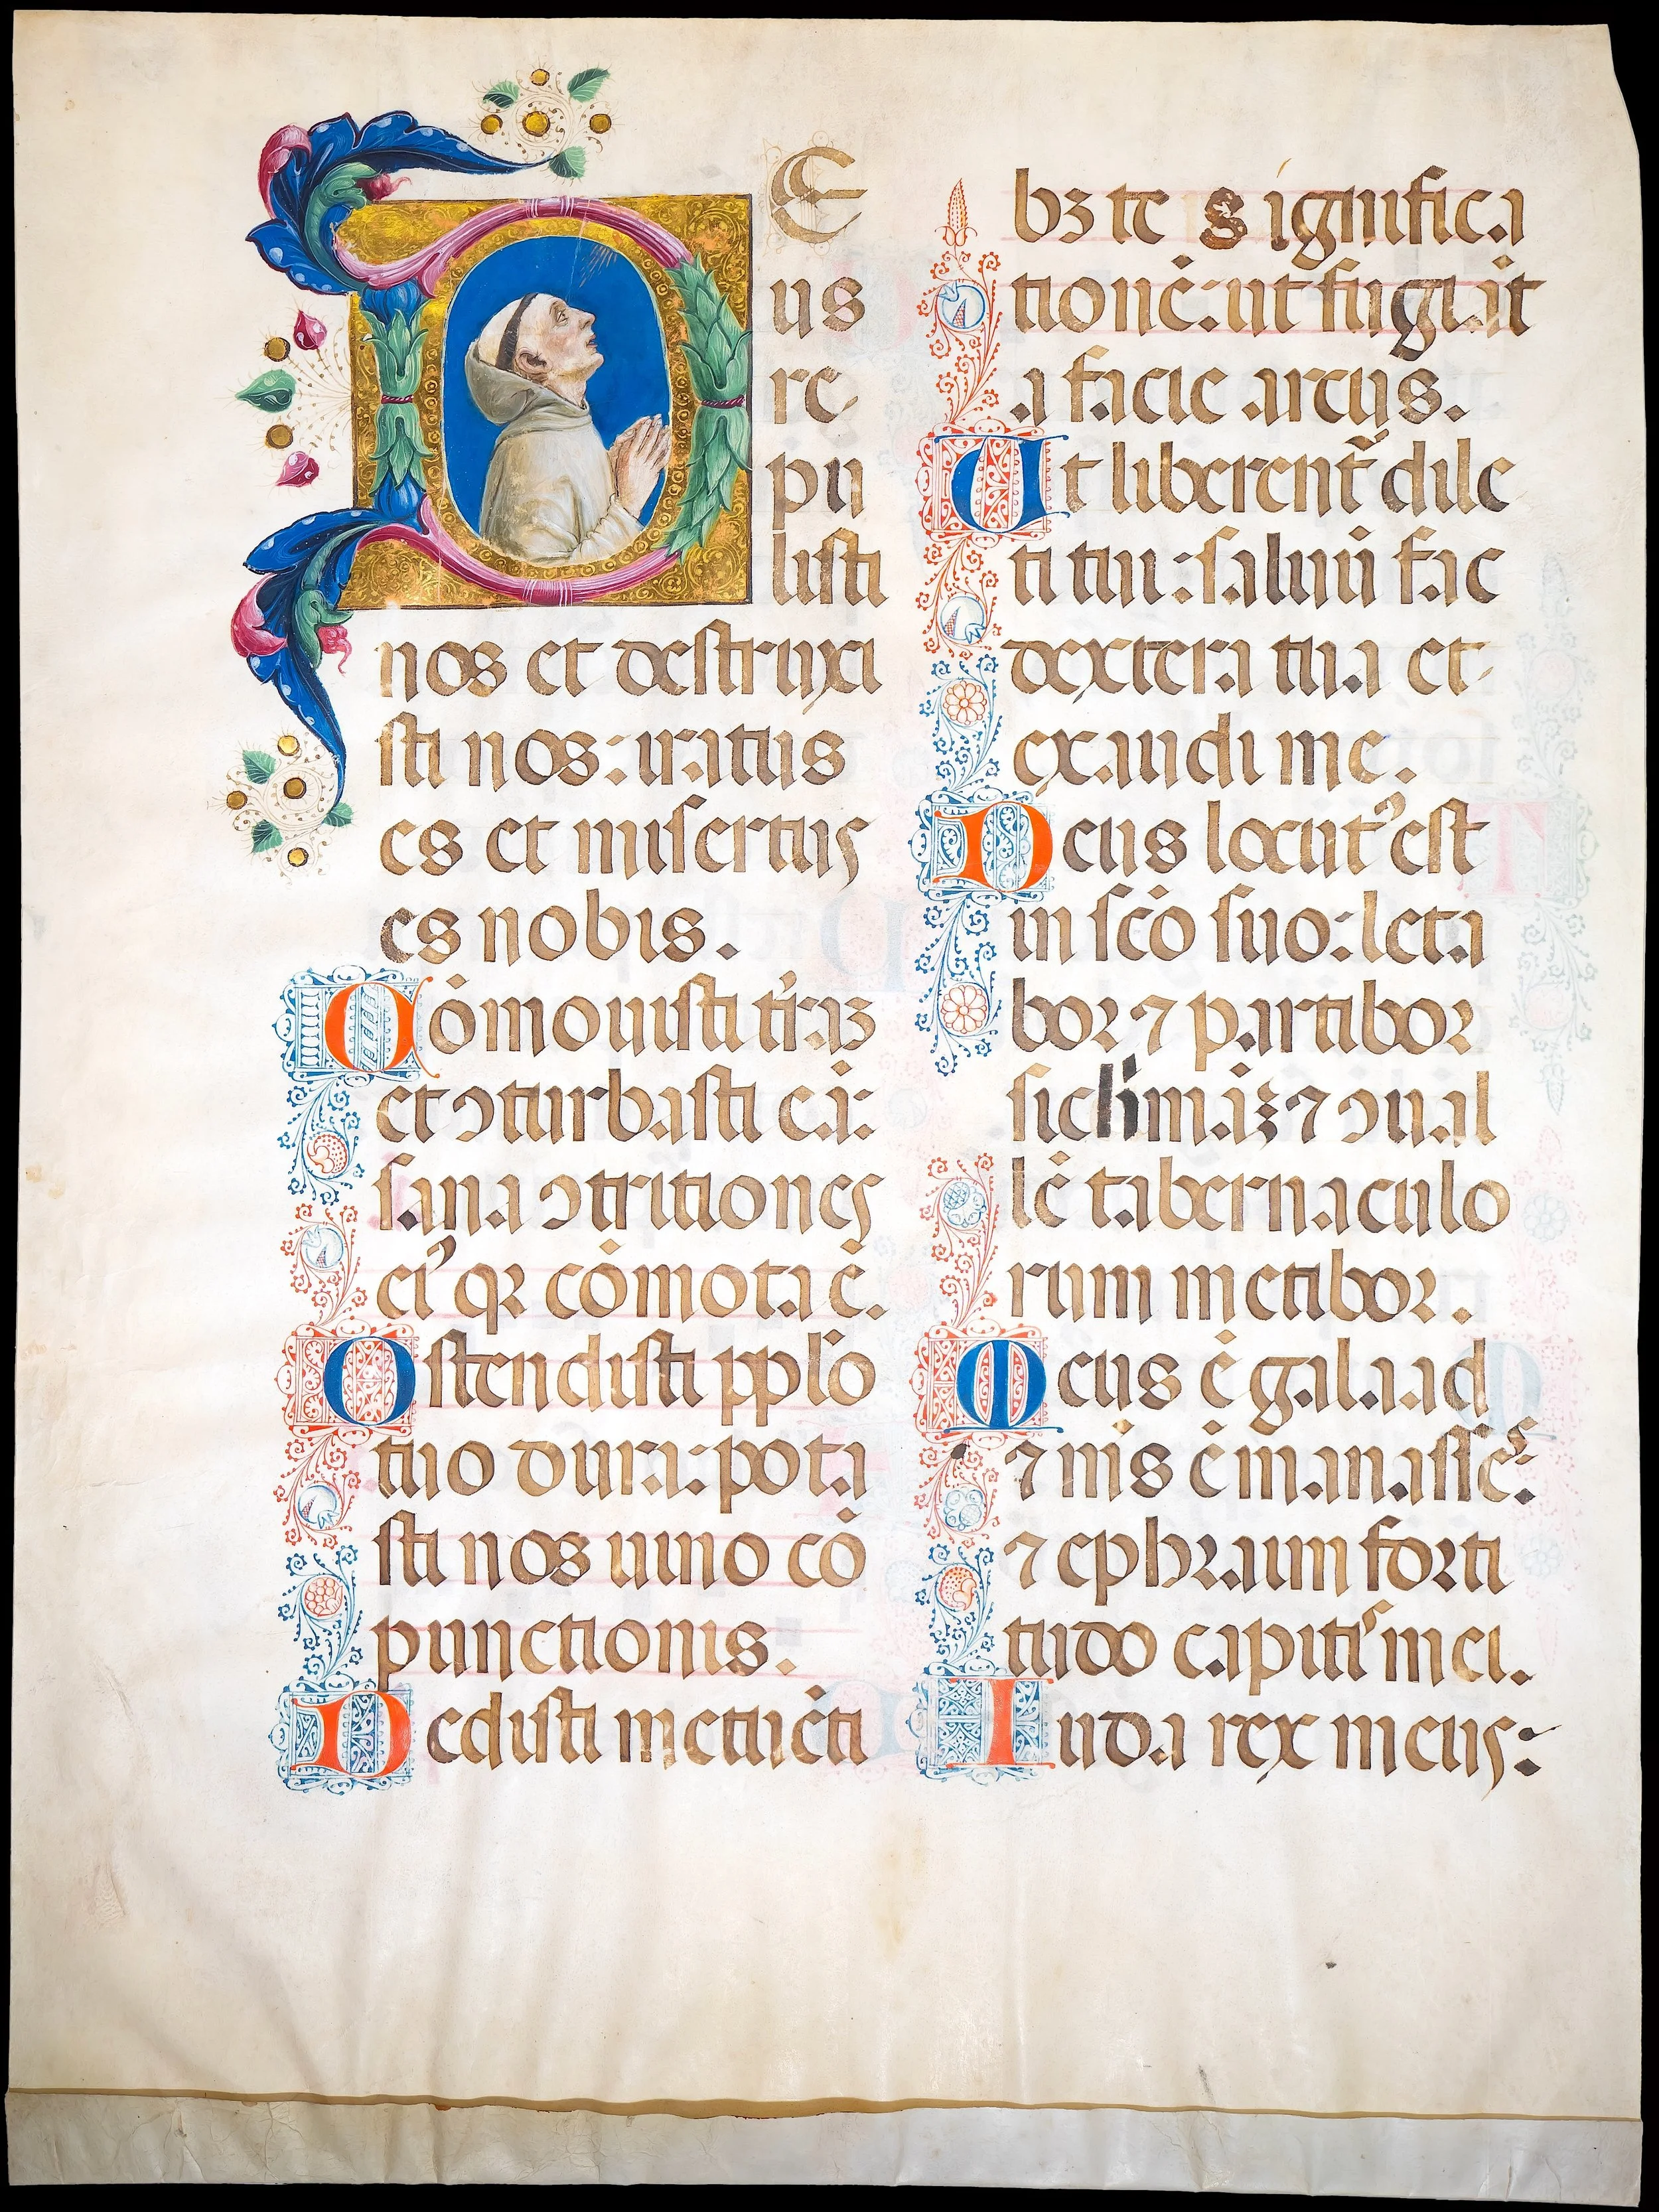 DE
us
re
pu
listi
nos et destruxi
sti nos: iratus
es et misertus
es nobis.
Cōmouisti t'rāʒ
et ꝯturbasti eā:
sana ꝯtritiones
ei' qꝛ cōmota ē.
Ostendisti pplo
tuo dura: pota
sti nos uino cō
punctionis.
Dedisti metuēti
bꝫ te significa
tionē: ut fugiāt
a facie arcus.
Ut liberent᷑ dile
cti tui: saluū fac
dextera tua et
exaudi me.
Deus locut᷒ est
in sc̄o suo: leta
boꝛ ⁊ partiboꝛ
sichimāʒ ⁊ ꝯual
lē tabernaculo
rum metiboꝛ.
Meus ē galaad
⁊ m̄s ē manasses:
⁊ ephꝛaim foꝛti
tudo capitis mei.
Iuda rex meus: